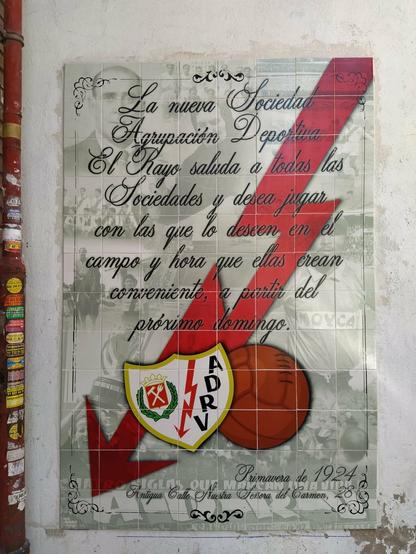 La nueva Sociedad
Agrupación Deportiva
El Rayo saluda a todas las
Sociedades y desea jugar
con las que lo deseen en el
campo y hora que ellas crean
conveniente, a partir del
próximo domingo.
ADRV
Primavera de 1924
Antigua Calle Nuestra Señora del Carmen, 28